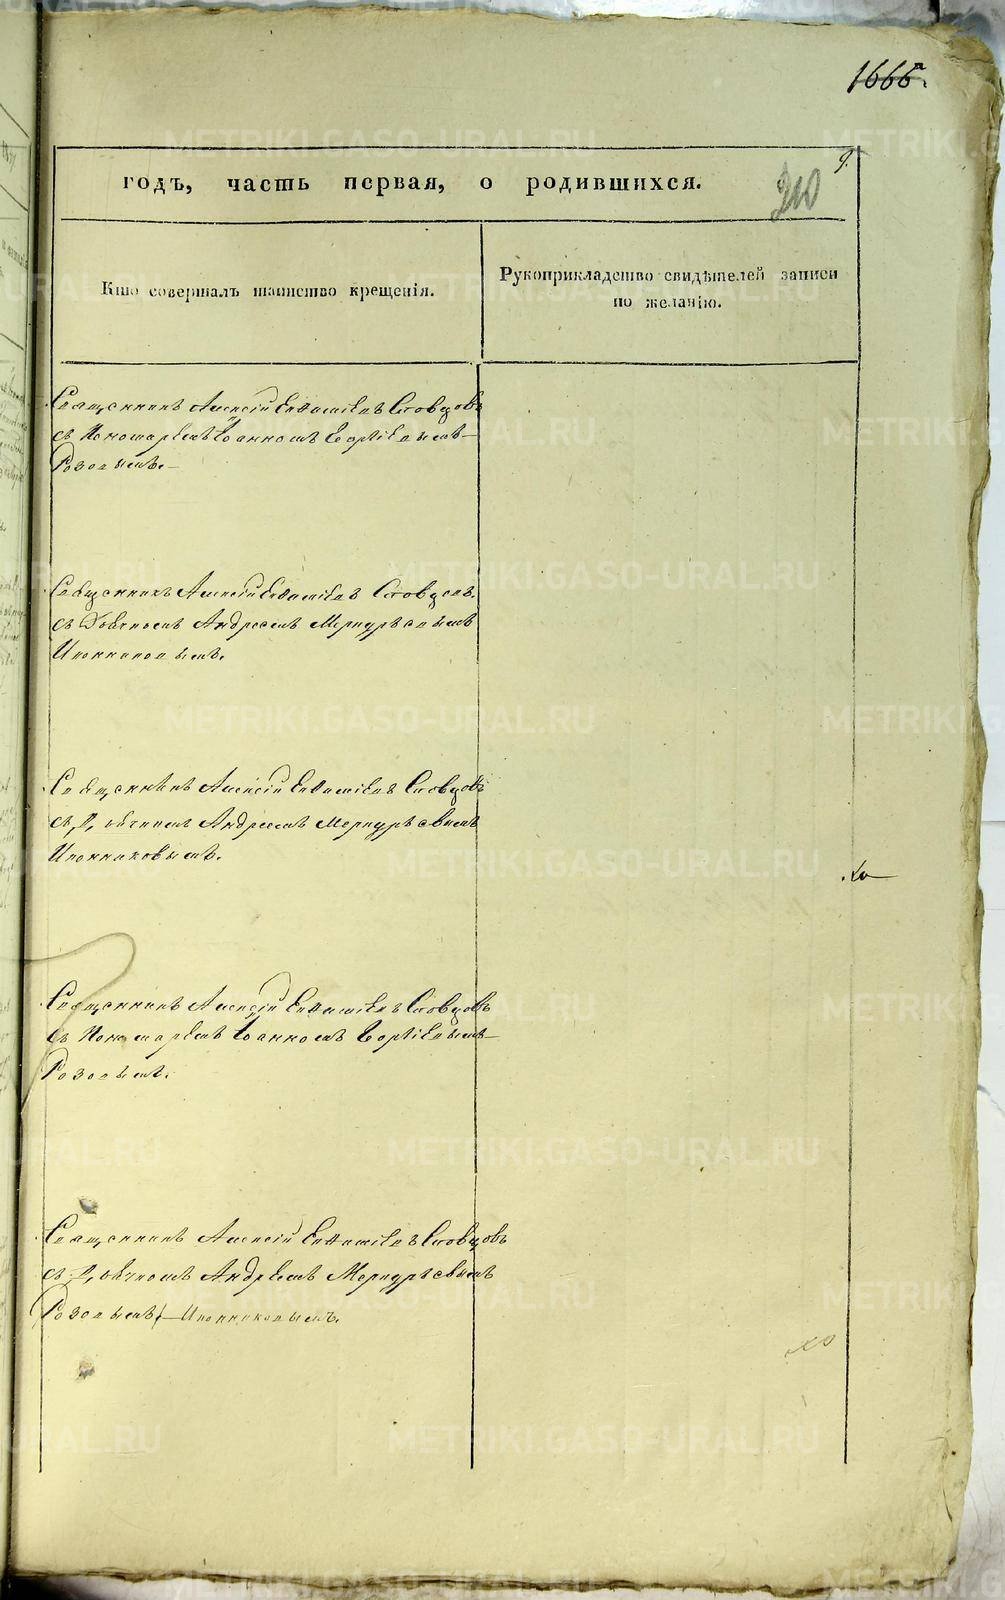 1666.
9.
210
годъ, часть первая, о родившихся.
Кто совершалъ таинство крещенія.
Рукоприкладство свидѣтелей записи
по желанію.
Священникъ Алексій Евѳиміевъ Словцовъ
съ Пономаремъ Іоанномъ Георгіевымъ
Розовымъ.
Священникъ Алексій Евѳиміевъ Словцовъ
съ Дьячкомъ Андреемъ Меркурьевымъ
Иконниковымъ.
Священникъ Алексій Евѳиміевъ Словцовъ
съ Дьячкомъ Андреемъ Меркурьевымъ
Иконниковымъ.
Священникъ Алексій Евѳиміевъ Словцовъ
съ Пономаремъ Іоанномъ Георгіевымъ
Розовымъ.
Священникъ Алексій Евѳиміевъ Словцовъ
съ Дьячкомъ Андреемъ Меркурьевымъ
Розовымъ Иконниковымъ.
METRIKI.GASO-URAL.RU